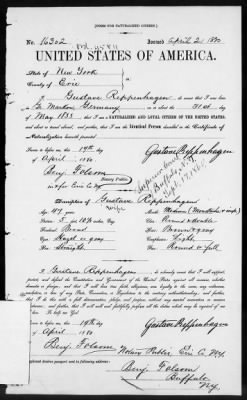 [FORM FOR NATURALIZED CITIZEN.]
No. 16302 Issued April 2 1880
UNITED STATES OF AMERICA.
State of New York
County of Erie
I, Gustave Reppenhagen, do swear that I was born
in Germany on the 31st
day of May 1833; that I am a NATURALIZED AND LOYAL CITIZEN OF THE UNITED STATES,
and about to travel abroad; and further, that I am the Identical Person described in the Certificate of
Naturalization herewith presented.
Sworn to before me this 19th day
of April 1880
Gustave Reppenhagen
Benj. Folsom
in & for Erie Co NY
Notary Public.
Description of Gustave Reppenhagen
Age: 47 years
Mouth: Medium
Stature: 5 feet
Chin: Round
Forehead: Broad
Hair: Brown & gray
Eyes: Hazel or gray
Complexion: Light
Nose: Straight
Face: Round & full
I, Gustave Reppenhagen, do solemnly swear that I will support,
protect, and defend the Constitution and Government of the United States against all enemies, whether
domestic or foreign; and that I will bear true faith, allegiance, and loyalty to the same, any ordinance,
resolution, or law of any State, Convention, or Legislature to the contrary notwithstanding; and further,
that I do this with a full determination, pledge, and purpose, without any mental reservation or evasion
whatsoever; and further, that I will well and faithfully perform all the duties which may be required of me
by law. So help me God.
Sworn to before me this 19th
day of
April 1880
Gustave Reppenhagen
Benj. Folsom Notary Public Erie Co. N.Y.
Applicant desires passport to be sent to following address:
Benj. Folsom
Buffalo
N.Y.